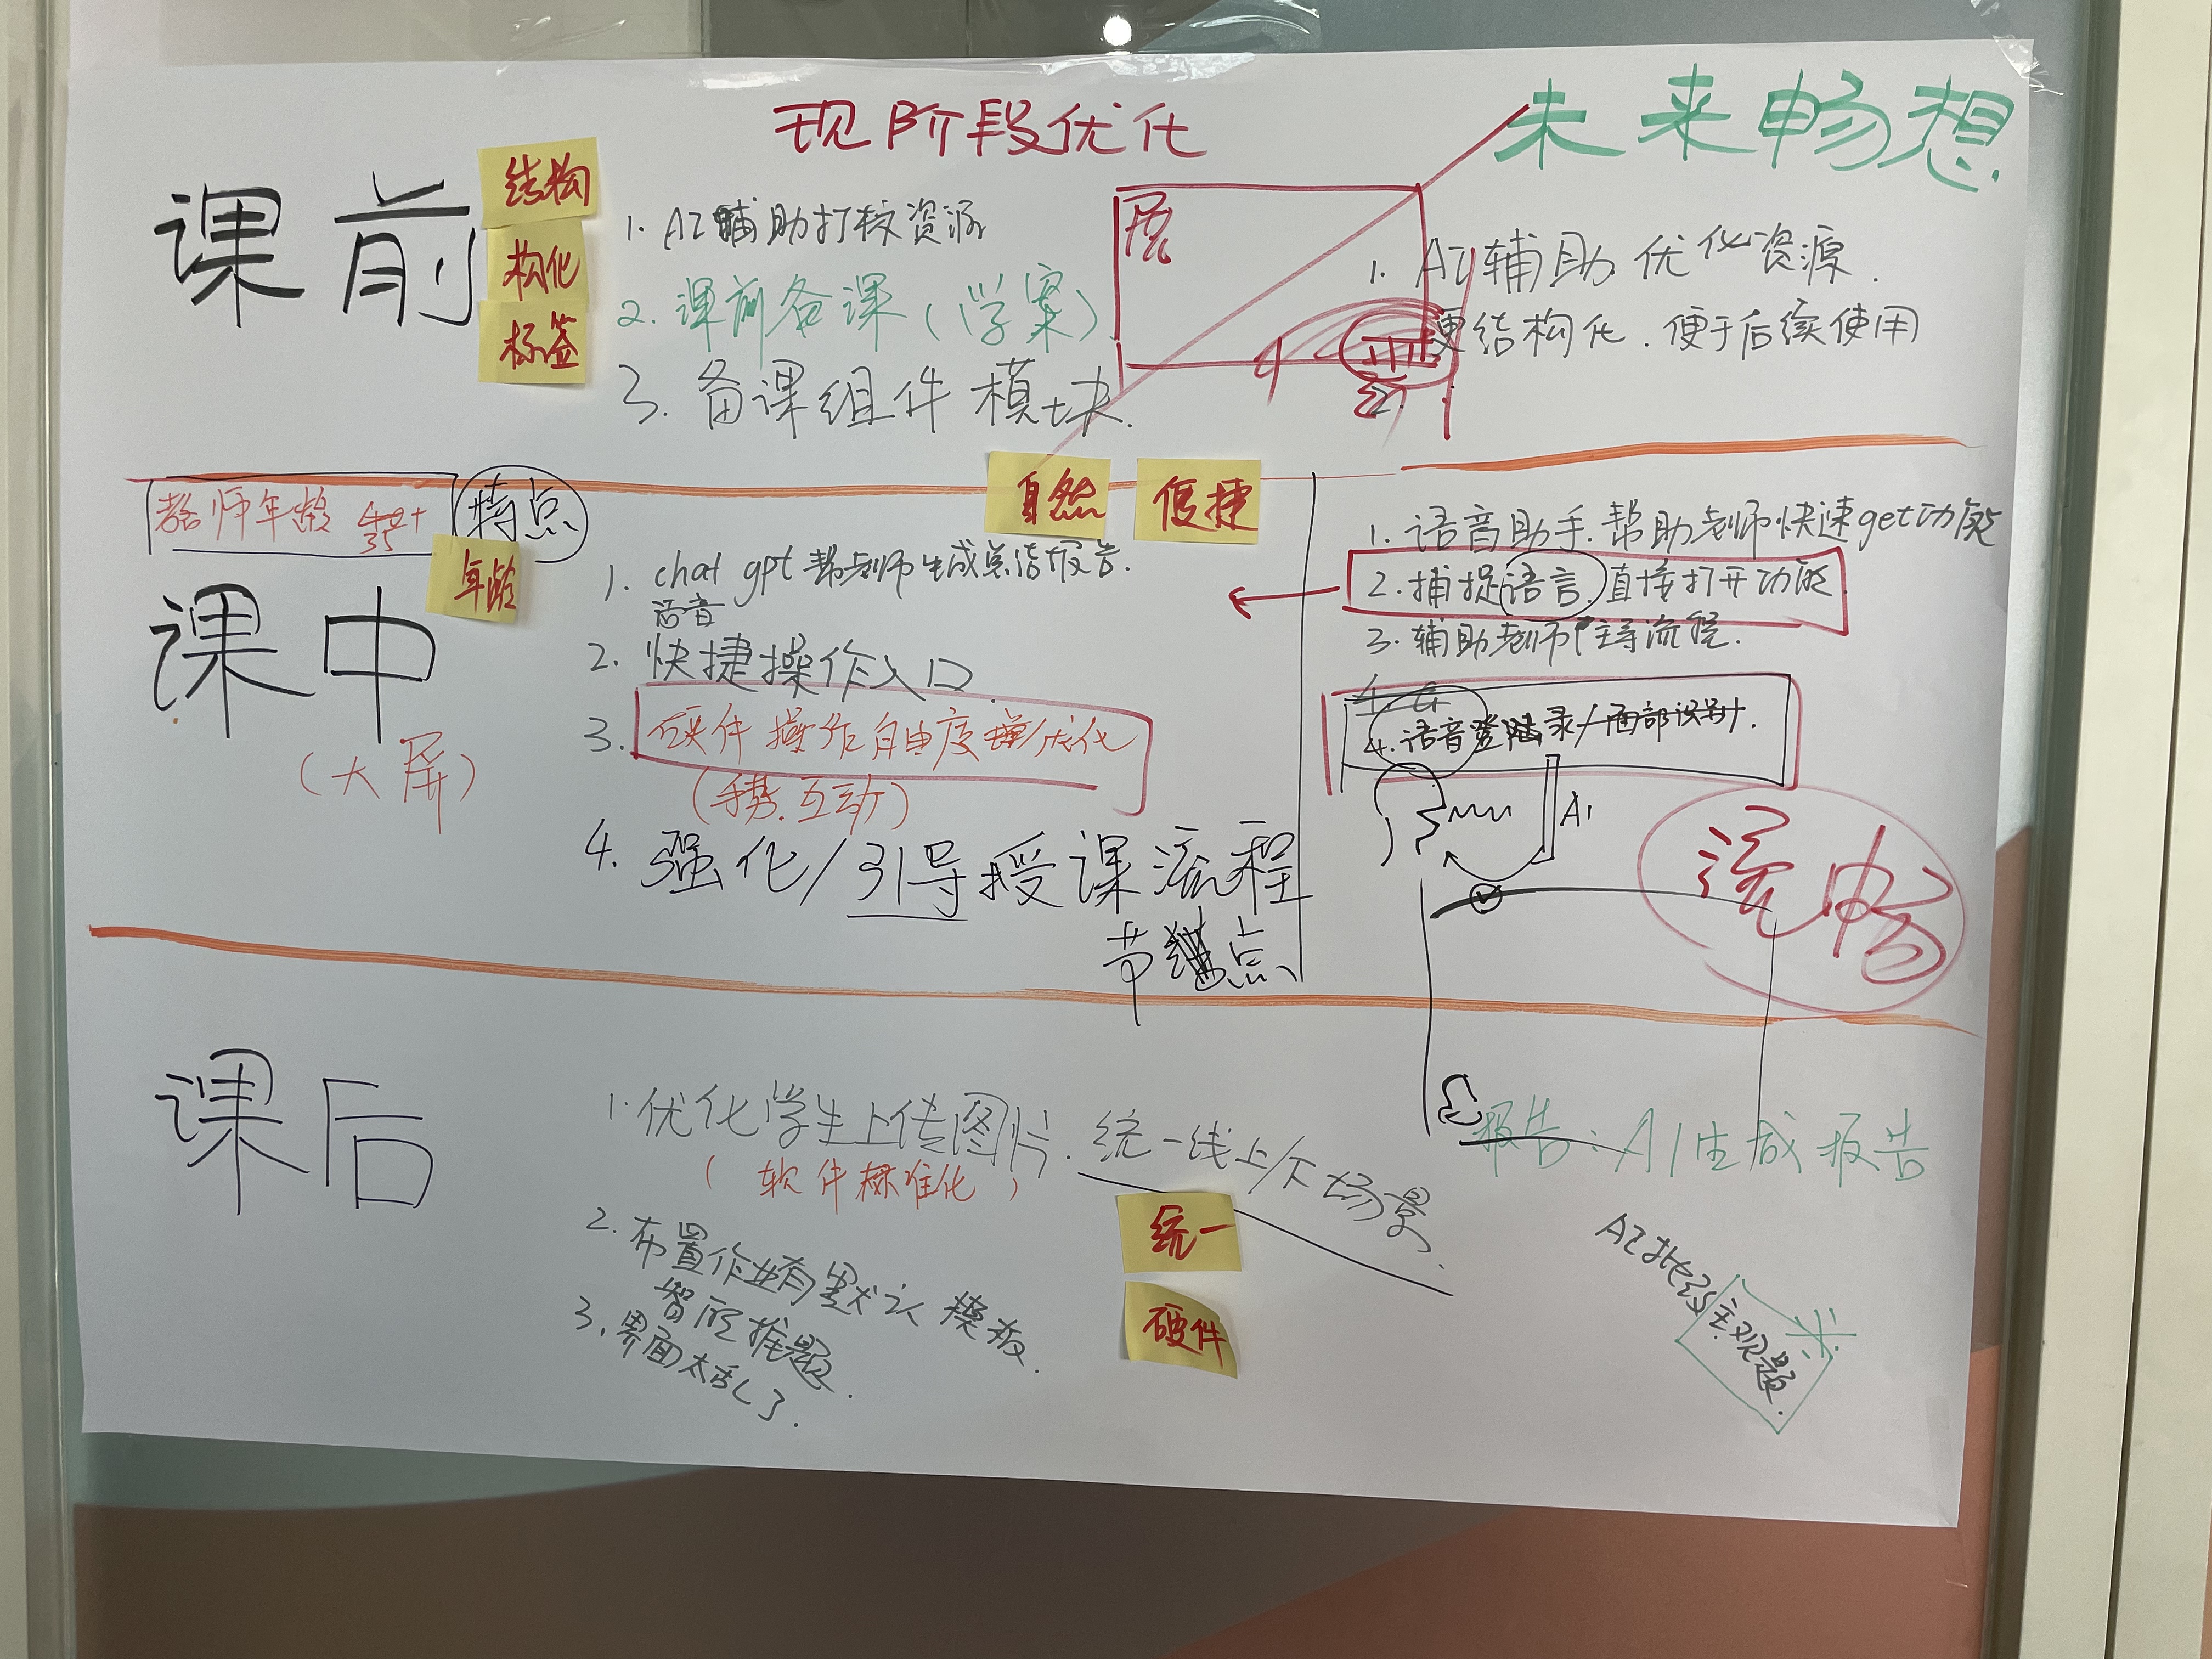 现阶段优化
未来畅想
课前
结构
构化
标签
1. AI辅助打校资源
2. 课前备课(学案)
3. 备课组件模块.
1. AI辅助优化资源.
更结构化.便于后续使用
自然
便捷
教师年龄 40+
35
特点
年龄
课中
(大屏)
1. chat gpt帮老师生成总结报告.
语音
2. 快捷操作入口
3. 硬件操作自由度增/优化
(手势.互动)
4. 强化/引导授课流程
节点
1. 语音助手.帮助老师快速get功能
2. 捕捉语言.直接打开功能
3. 辅助老师主导流程.
4. 语音登陆录/面部识别.
AI
流畅
课后
1. 优化学生上传图片.统一线上/下场景.
(软件标准化)
2. 布置作业有默认模板.
智能推题.
3. 界面太乱了.
统一
硬件
报告:AI生成报告
AI批改主观题.